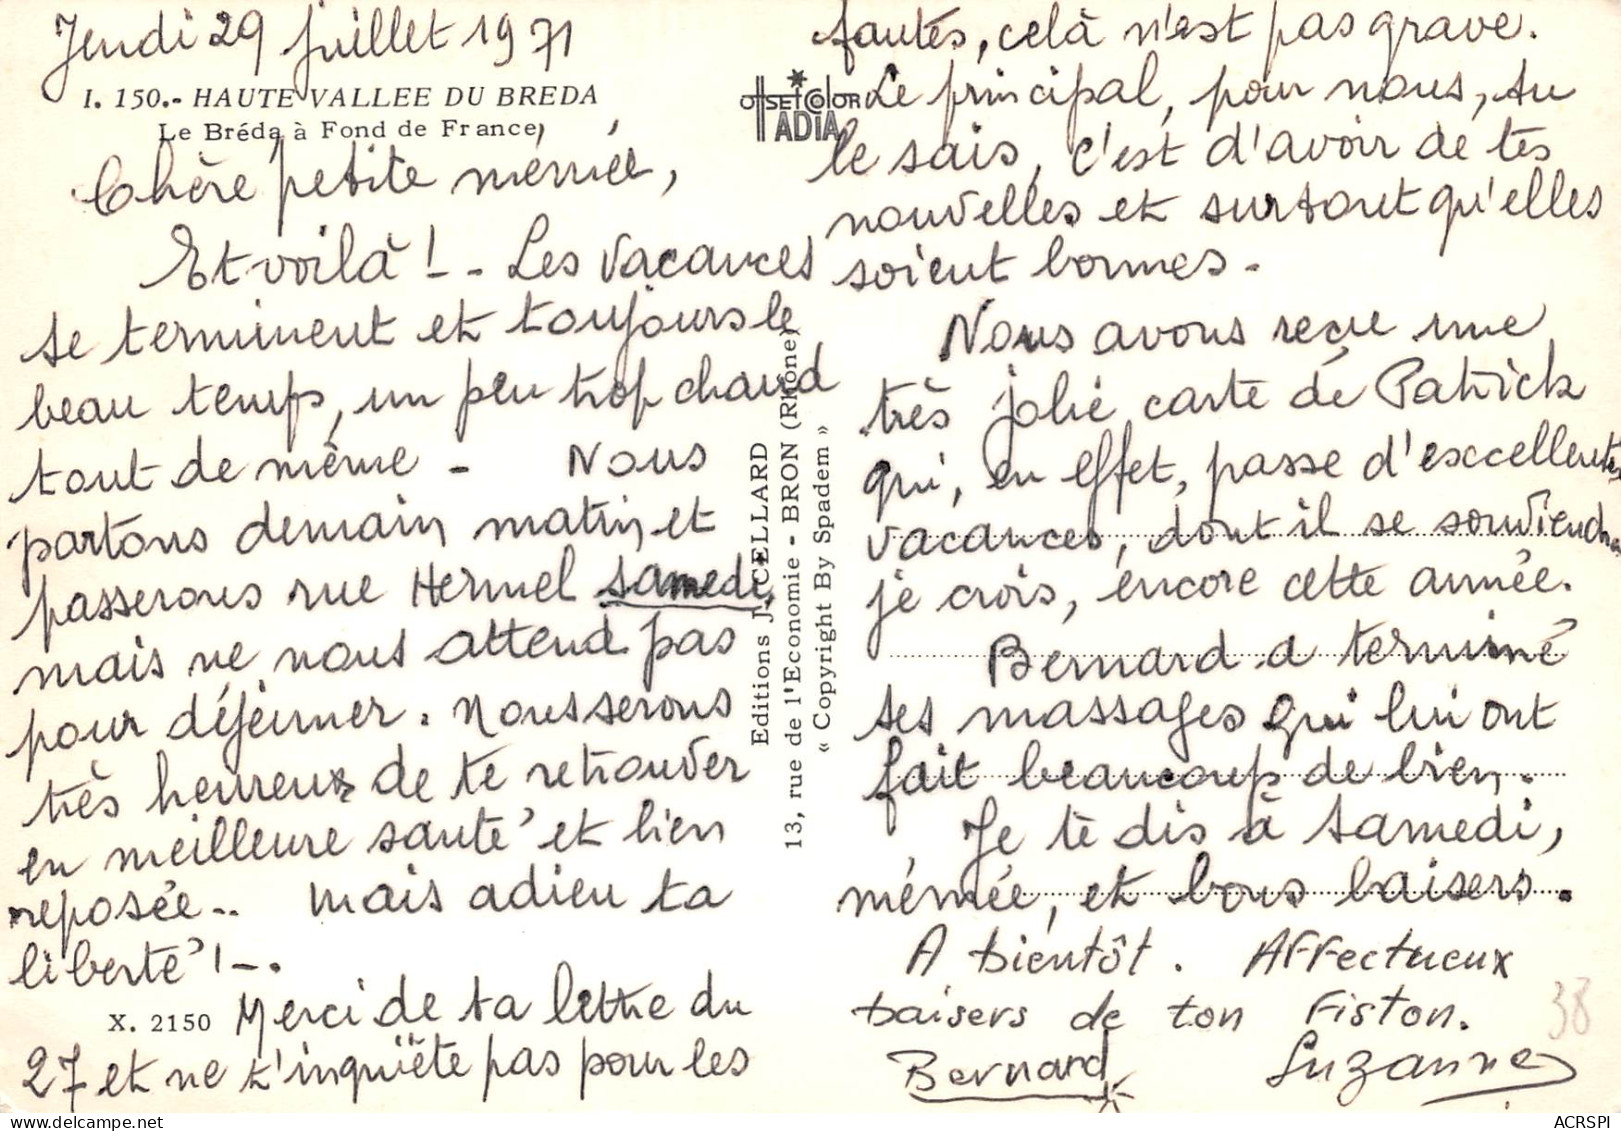 Jeudi 29 juillet 1971
I. 150.- HAUTE VALLEE DU BREDA
Le Bréda à Fond de France
Chère petite mémée,
Et voilà ! - Les vacances
se terminent et toujours le
beau temps, un peu trop chaud
tout de même - Nous
partons demain matin et
passerons rue Hermel samedi,
mais ne nous attend pas
pour déjeuner. Nous serons
très heureux de te retrouver
en meilleure santé et bien
reposée.. Mais adieu ta
liberté ! -.
X. 2150 Merci de ta lettre du
27 et ne t'inquiète pas pour les
OFFSET COLOR
ADIA
Editions J. CELLARD
13, rue de l'Economie - BRON (Rhône)
« Copyright By Spadem »
fautes, celà n'est pas grave.
Le principal, pour nous, tu
le sais, c'est d'avoir de tes
nouvelles et surtout qu'elles
soient bonnes -
Nous avons reçu une
très jolie carte de Patrick
qui, en effet, passe d'exccellentes
vacances, dont il se souviendra
je crois, encore cette année.
Bernard a terminé
ses massages qui lui ont
fait beaucoup de bien.
Je te dis à samedi,
mémée, et bons baisers.
A bientôt. Affectueux
baisers de ton Fiston.
Bernard Suzanne
38
ACRSPI